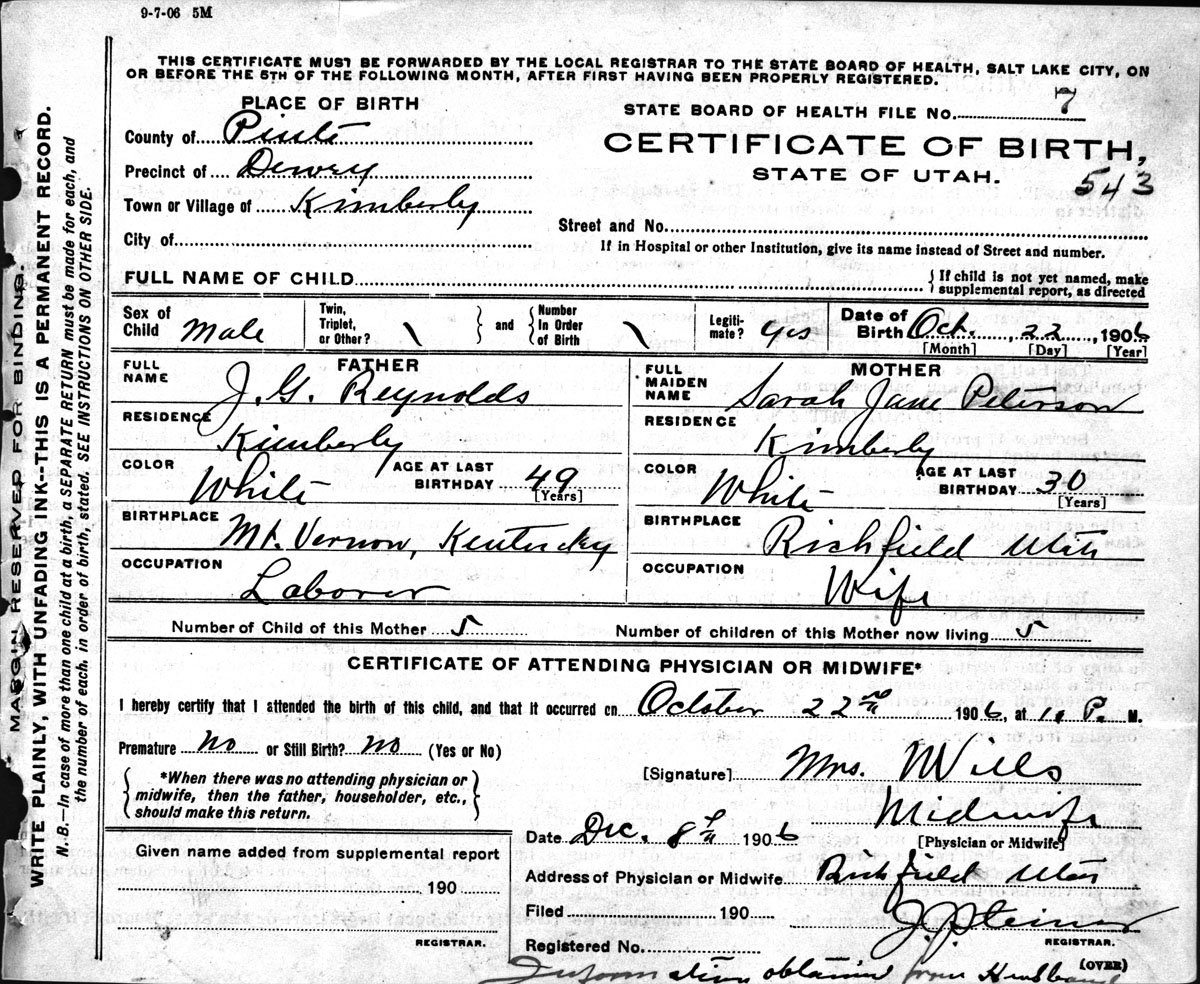 9-7-06 5M
THIS CERTIFICATE MUST BE FORWARDED BY THE LOCAL REGISTRAR TO THE STATE BOARD OF HEALTH, SALT LAKE CITY, ON
OR BEFORE THE 5TH OF THE FOLLOWING MONTH, AFTER FIRST HAVING BEEN PROPERLY REGISTERED.
MARGIN RESERVED FOR BINDING.
WRITE PLAINLY, WITH UNFADING INK--THIS IS A PERMANENT RECORD.
N. B.—In case of more than one child at a birth, a SEPARATE RETURN must be made for each, and
the number of each, in order of birth, stated. SEE INSTRUCTIONS ON OTHER SIDE.
PLACE OF BIRTH
County of Piute
Precinct of Dewey
Town or Village of Kimberly
City of
STATE BOARD OF HEALTH FILE No. 7
CERTIFICATE OF BIRTH,
STATE OF UTAH.
543
Street and No.
If in Hospital or other Institution, give its name instead of Street and number.
FULL NAME OF CHILD
If child is not yet named, make
supplemental report, as directed
Sex of Child Male
Twin, Triplet, or Other? \ and Number In Order of Birth \
Legitimate? yes
Date of Birth Oct. 22, 1906
[Month] [Day] [Year]
FATHER
FULL NAME J. G. Reynolds
RESIDENCE Kimberly
COLOR White AGE AT LAST BIRTHDAY 49 [Years]
BIRTHPLACE Mt. Vernon, Kentucky
OCCUPATION Laborer
MOTHER
FULL MAIDEN NAME Sarah Jane Peterson
RESIDENCE Kimberly
COLOR White AGE AT LAST BIRTHDAY 30 [Years]
BIRTHPLACE Richfield Utah
OCCUPATION Wife
Number of Child of this Mother 5 Number of children of this Mother now living 5
CERTIFICATE OF ATTENDING PHYSICIAN OR MIDWIFE*
I hereby certify that I attended the birth of this child, and that it occurred on October 22nd 1906, at P. M.
Premature No or Still Birth? No (Yes or No)
*When there was no attending physician or
midwife, then the father, householder, etc.,
should make this return.
[Signature] Mrs. Wills
Midwife
[Physician or Midwife]
Date Dec. 8th 1906
Given name added from supplemental report
190
REGISTRAR.
Address of Physician or Midwife Richfield Utah
Filed 190 J. P. Steiner
REGISTRAR.
Registered No.
(OVER)
Information obtained from Husband